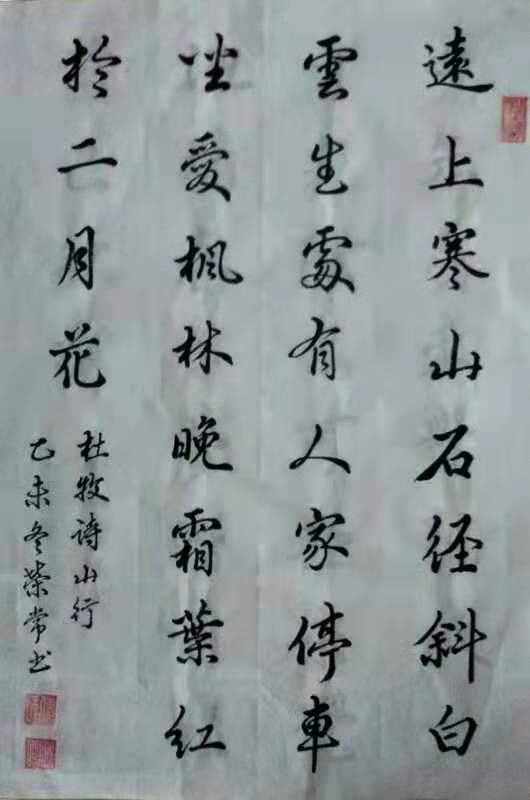 遠上寒山石径斜白
雲生處有人家停車
坐愛楓林晚霜葉紅
於二月花
杜牧诗山行
乙未冬荣常书